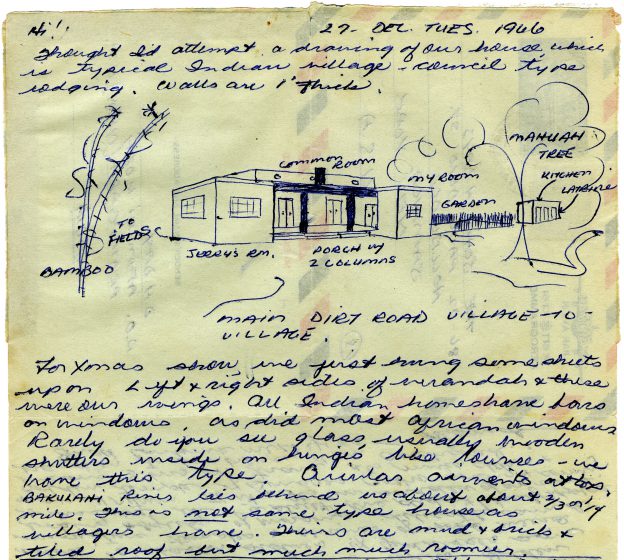 Hi!! 27 - DEC. TUES. 1966
Thought I'd attempt a drawing of our house which
is typical Indian village - council type
lodging. Walls are 1' thick.
COMMON ROOM
MAHUAH TREE
MY ROOM
KITCHEN
LATRINE
GARDEN
TO FIELDS
JERRY'S RM.
PORCH W/ 2 COLUMNS
BAMBOO
MAIN DIRT ROAD VILLAGE - TO -
VILLAGE
For Xmas show we just hung some sheets
upon left & right sides of verandah & these
were our wings. All Indian homes have bars
on windows, as did most African windows
Rarely do you see glass, usually wooden
shutters inside on hinges like louvres - we
have this type.
BAKULAHI River lies behind us about about 2/3 or 1/4
mile. This is not same type house as
villagers have. Theirs are mud & brick &
tiled roof but much much roomier